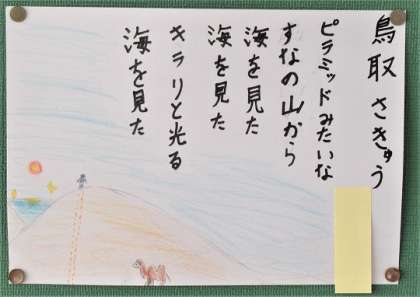 鳥取 さきゅう
ピラミッドみたいな
すなの山から
海を見た
海を見た
キラリと光る
海を見た